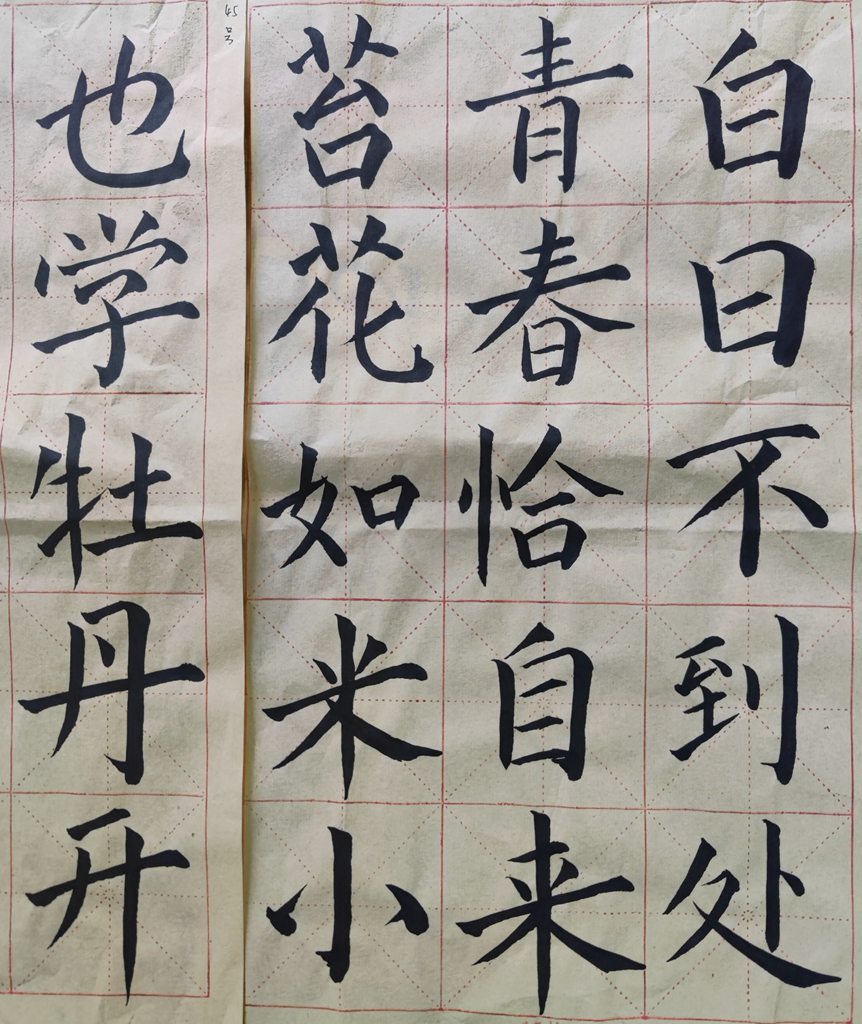 白日不到处
青春恰自来
苔花如米小
也学牡丹开
45号